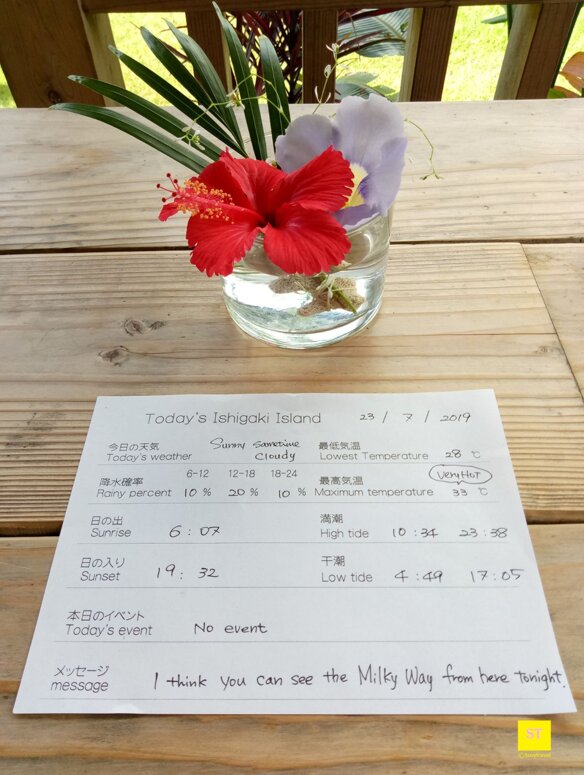 Today's Ishigaki Island 23 / 7 / 2019
今日の天気 Sunny sometime 最低気温
Today's weather cloudy Lowest Temperature 28 ℃
6-12 12-18 18-24 Very Hot
降水確率 最高気温
Rainy percent 10 % 20 % 10 % Maximum temperature 33 ℃
日の出 満潮
Sunrise 6 : 07 High tide 10 : 34 23 : 38
日の入り 干潮
Sunset 19 : 32 Low tide 4 : 49 17 : 05
本日のイベント
Today's event No event
メッセージ
message I think you can see the Milky Way from here tonight.
ST